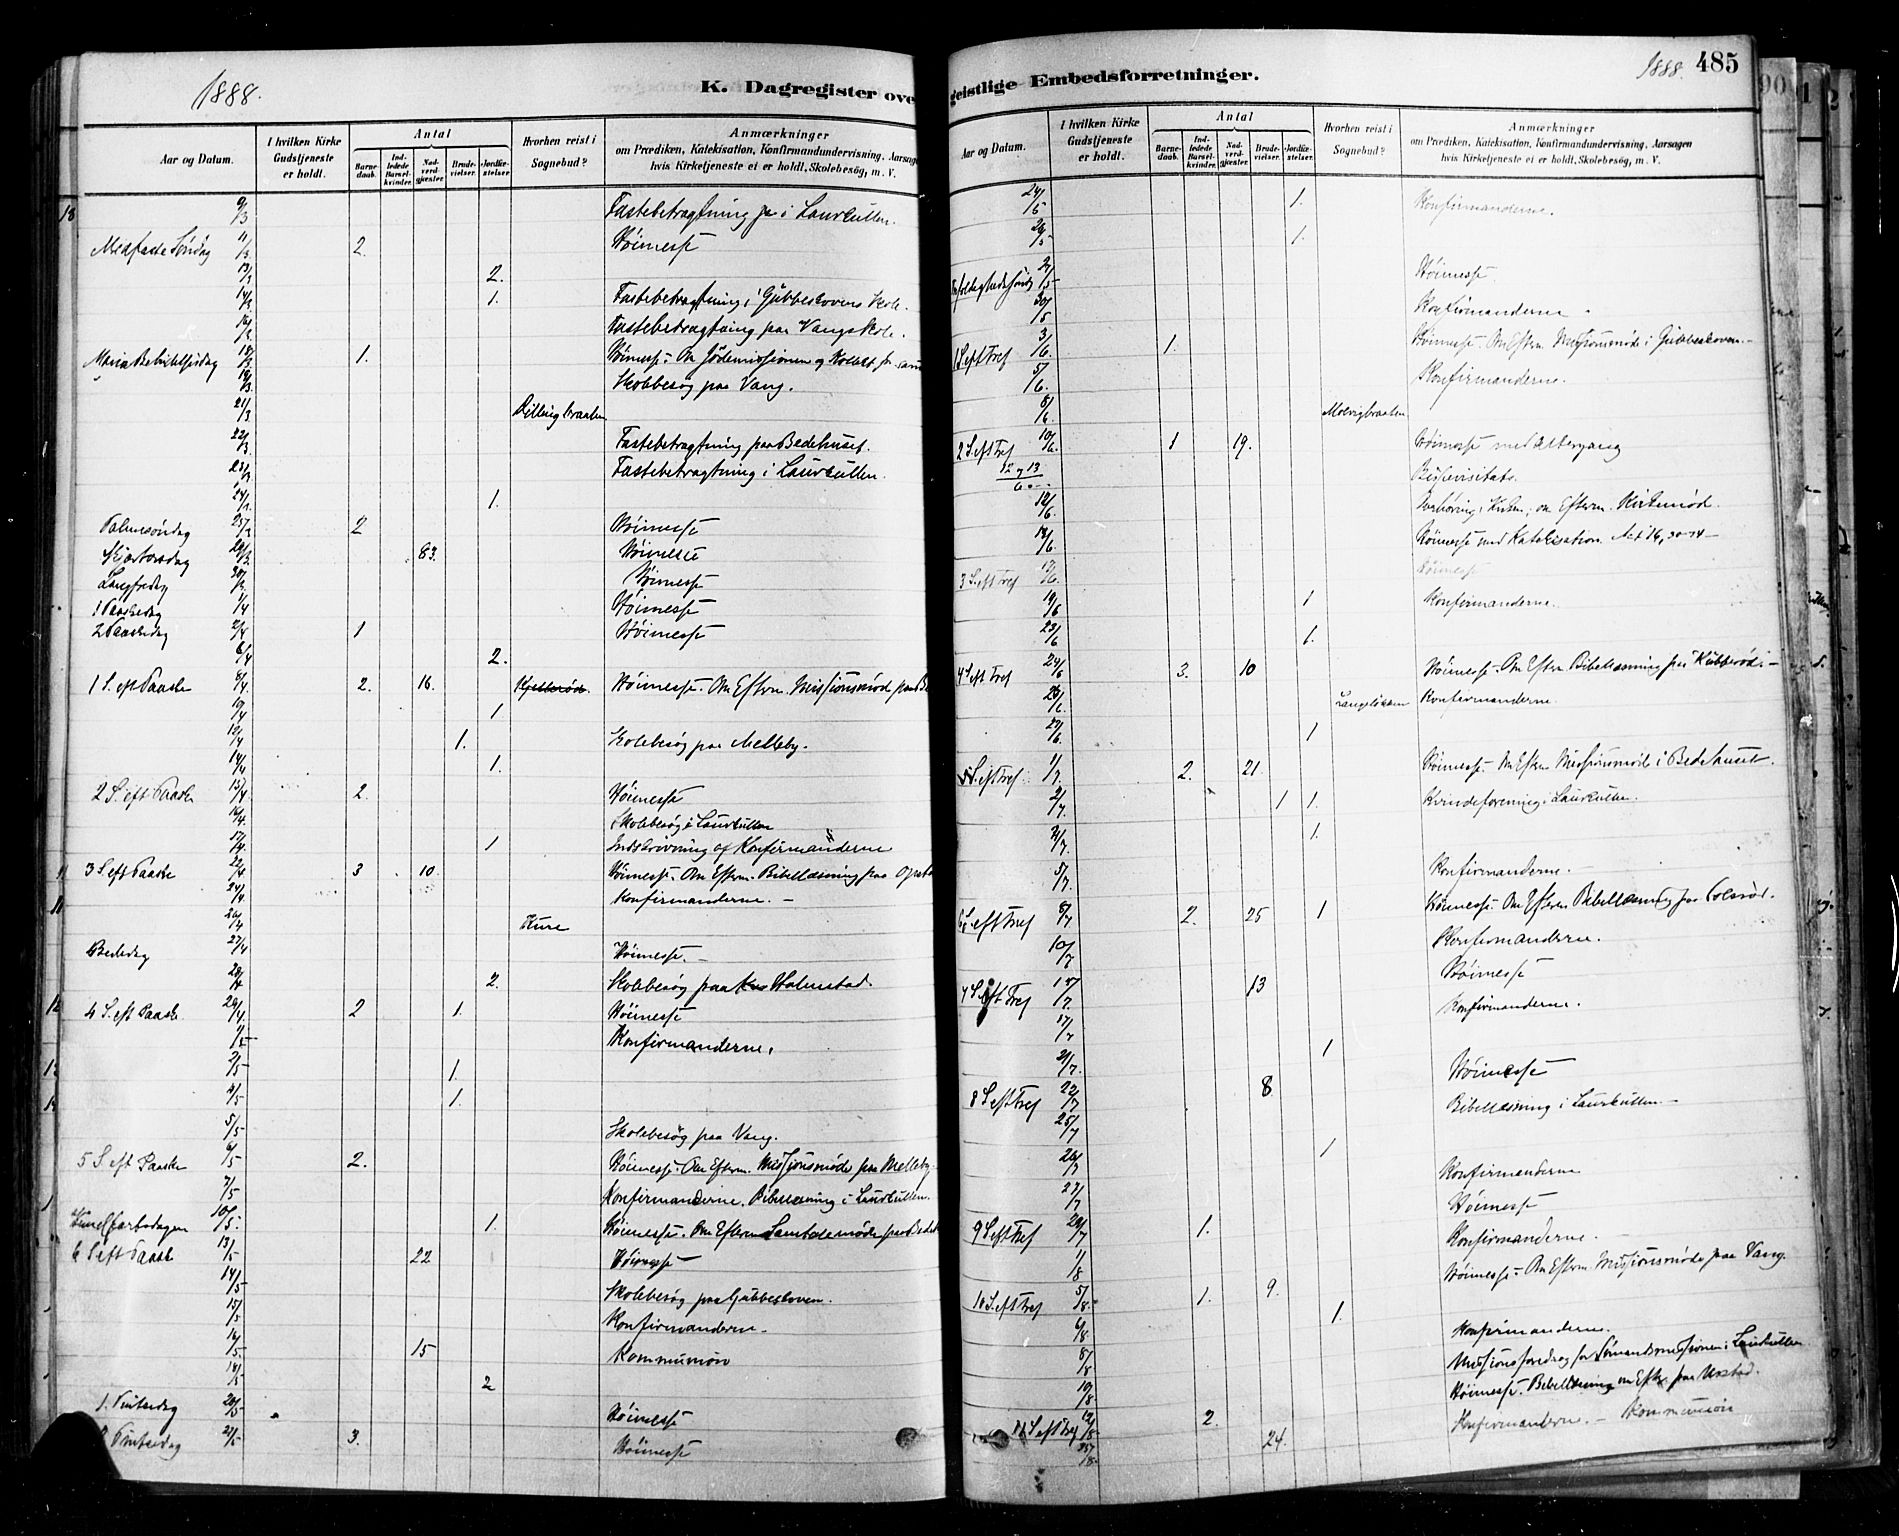 1888.
K. Dagregister ove
Aar og Datum.
I hvilken Kirke Gudstjeneste er holdt.
Antal
Barnedaab.
Indledede Barselkvinder.
Nadverdgjæster
Brudevielser.
Jordfæstelser
Hvorhen reist i Sognebud?
Anmærkninger
om Prædiken, Katekisation, Konfirmandundervisning, Aarsagen
hvis Kirketjeneste ei er holdt, Skolebesøg, m. V.
9/3 Fastebetragtning i Laurkullen.
Midfaste Søndag 11/3 2. Høimesse
13/3 2.
14/3 1. Fastebetragtning i Gubbeskovens Skole.
16/3 Fastebetragtning paa Vang Skole.
Maria Bebudelsesdag 18/3 1. Høimesse. Om Jødemissionen og Kollekt for
19/3 Skolebesøg paa Vang.
21/3
22/3 Fastebetragtning paa Bedehuset.
23/3 Fastebetragtning i Laurkullen.
24/3 1.
Palmesøndag 25/3 2 Høimesse
Skjærtorsdag 29/3 83. Høimesse
Langfredag 30/3 Høimesse
1 Paaskedag 1/4 Høimesse
2 Paaskedag 2/4 1 Høimesse
6/4 2.
1 S. eft Paaske 8/4 2. 16. Høimesse. Om Efterm. Missionsmøde paa
10/4 1
12/4 1. Skolebesøg paa Melleby.
14/4 1.
2 S. eft Paaske 15/4 2. Høimesse
16/4 Skolebesøg i Laurkullen
17/4 1 Indskrivning af Konfirmanderne
3 S eft Paaske 22/4 3 10. Høimesse. Om Efterm. Bibellæsning paa
24/4 Konfirmanderne. –
26/4 Kure
Bededag 27/4 Høimesse. –
28/4 2. Skolebesøg paa Holmestad.
4 S. eft Paaske 29/4 2 1. Høimesse
1/5 Konfirmanderne.
2/5 1.
4/5 1.
5/5 Skolebesøg paa Vang.
5 S eft Paaske 6/5 2. Høimesse. Om Efterm. Missionsmøde paa Melleby
7/5 Konfirmanderne. Bibellæsning i Laurkullen.
Himmelfartsdagen 10/5 1. Høimesse. Om Efterm. Samtalemøde paa
6 S eft Paaske 13/5 22 Høimesse
14/5 Skolebesøg paa Gubbeskoven.
15/5 Konfirmanderne.
16/5 15 Kommunion
18/5 2
1. Pintsedag 20/5 Høimesse
2 Pintsedag 21/5 3. Høimesse
geistlige Embedsforretninger.
1888. 485
Aar og Datum.
I hvilken Kirke Gudstjeneste er holdt.
Antal
Barnedaab.
Indledede Barselkvinder.
Nadverdgjæster
Brudevielser.
Jordfæstelser.
Hvorhen reist i Sognebud?
Anmærkninger
om Prædiken, Katekisation, Konfirmandundervisning, Aarsagen
hvis Kirketjeneste ei er holdt, Skolebesøg, m. V.
24/5 1. Konfirmanderne.
26/5 1.
27/5 Høimesse
30/5 Konfirmanderne
1 S eft Tref 3/6 1. Høimesse. Om Efterm. Missionsmøde i Gubbeskoven.
5/6 Konfirmanderne.
8/6
2 S. eft Tref 10/6 1 19. Høimesse med Altergang
12 og 13/6 Bispevisitats.
12/6 Kirken, om Efterm.
13/6 Høimesse med Katekisation.
3 S. eft Tref 17/6 Høimesse
19/6 1 Konfirmanderne.
23/6 1.
4 S eft Tref 24/6 3. 10 Høimesse. Om Efterm. Bibellæsning paa Kubberød. –
26/6 Konfirmanderne.
29/6 1
5 S. eft Tref. 1/7 2. 21. Høimesse. Om Efterm. Missionsmøde i Bedehuset.
2/7 1 1. Kvindeforening i Laurkullen.
4/7 1.
5/7 Konfirmanderne.
6 S. eft Tref 8/7 2. 25 1 Høimesse. Om Efterm Bibellæsning paa
10/7 Konfirmanderne.
7 S. eft Tref 15/7 13 Høimesse
17/7 Konfirmanderne.
21/7 1
8 S eft Tref 22/7 8 Høimesse
25/7 Bibellæsning i Laurkullen. –
26/7 1
27/7 Konfirmanderne
9 S eft Tref 29/7 1. Høimesse
1/8 Konfirmanderne.
10 S. eft Tref 5/8 1. 9. Høimesse. Om Efterm. Missionsmøde paa Vang.
6/8 1.
8/8 Konfirmanderne.
10/8 Missionsforedrag for Sømandsmissionen i Laurkullen
11 S eft Tref 12/8 2. Høimesse. Bibellæsning om Efterm. paa
24. Konfirmanderne. – Kommunion